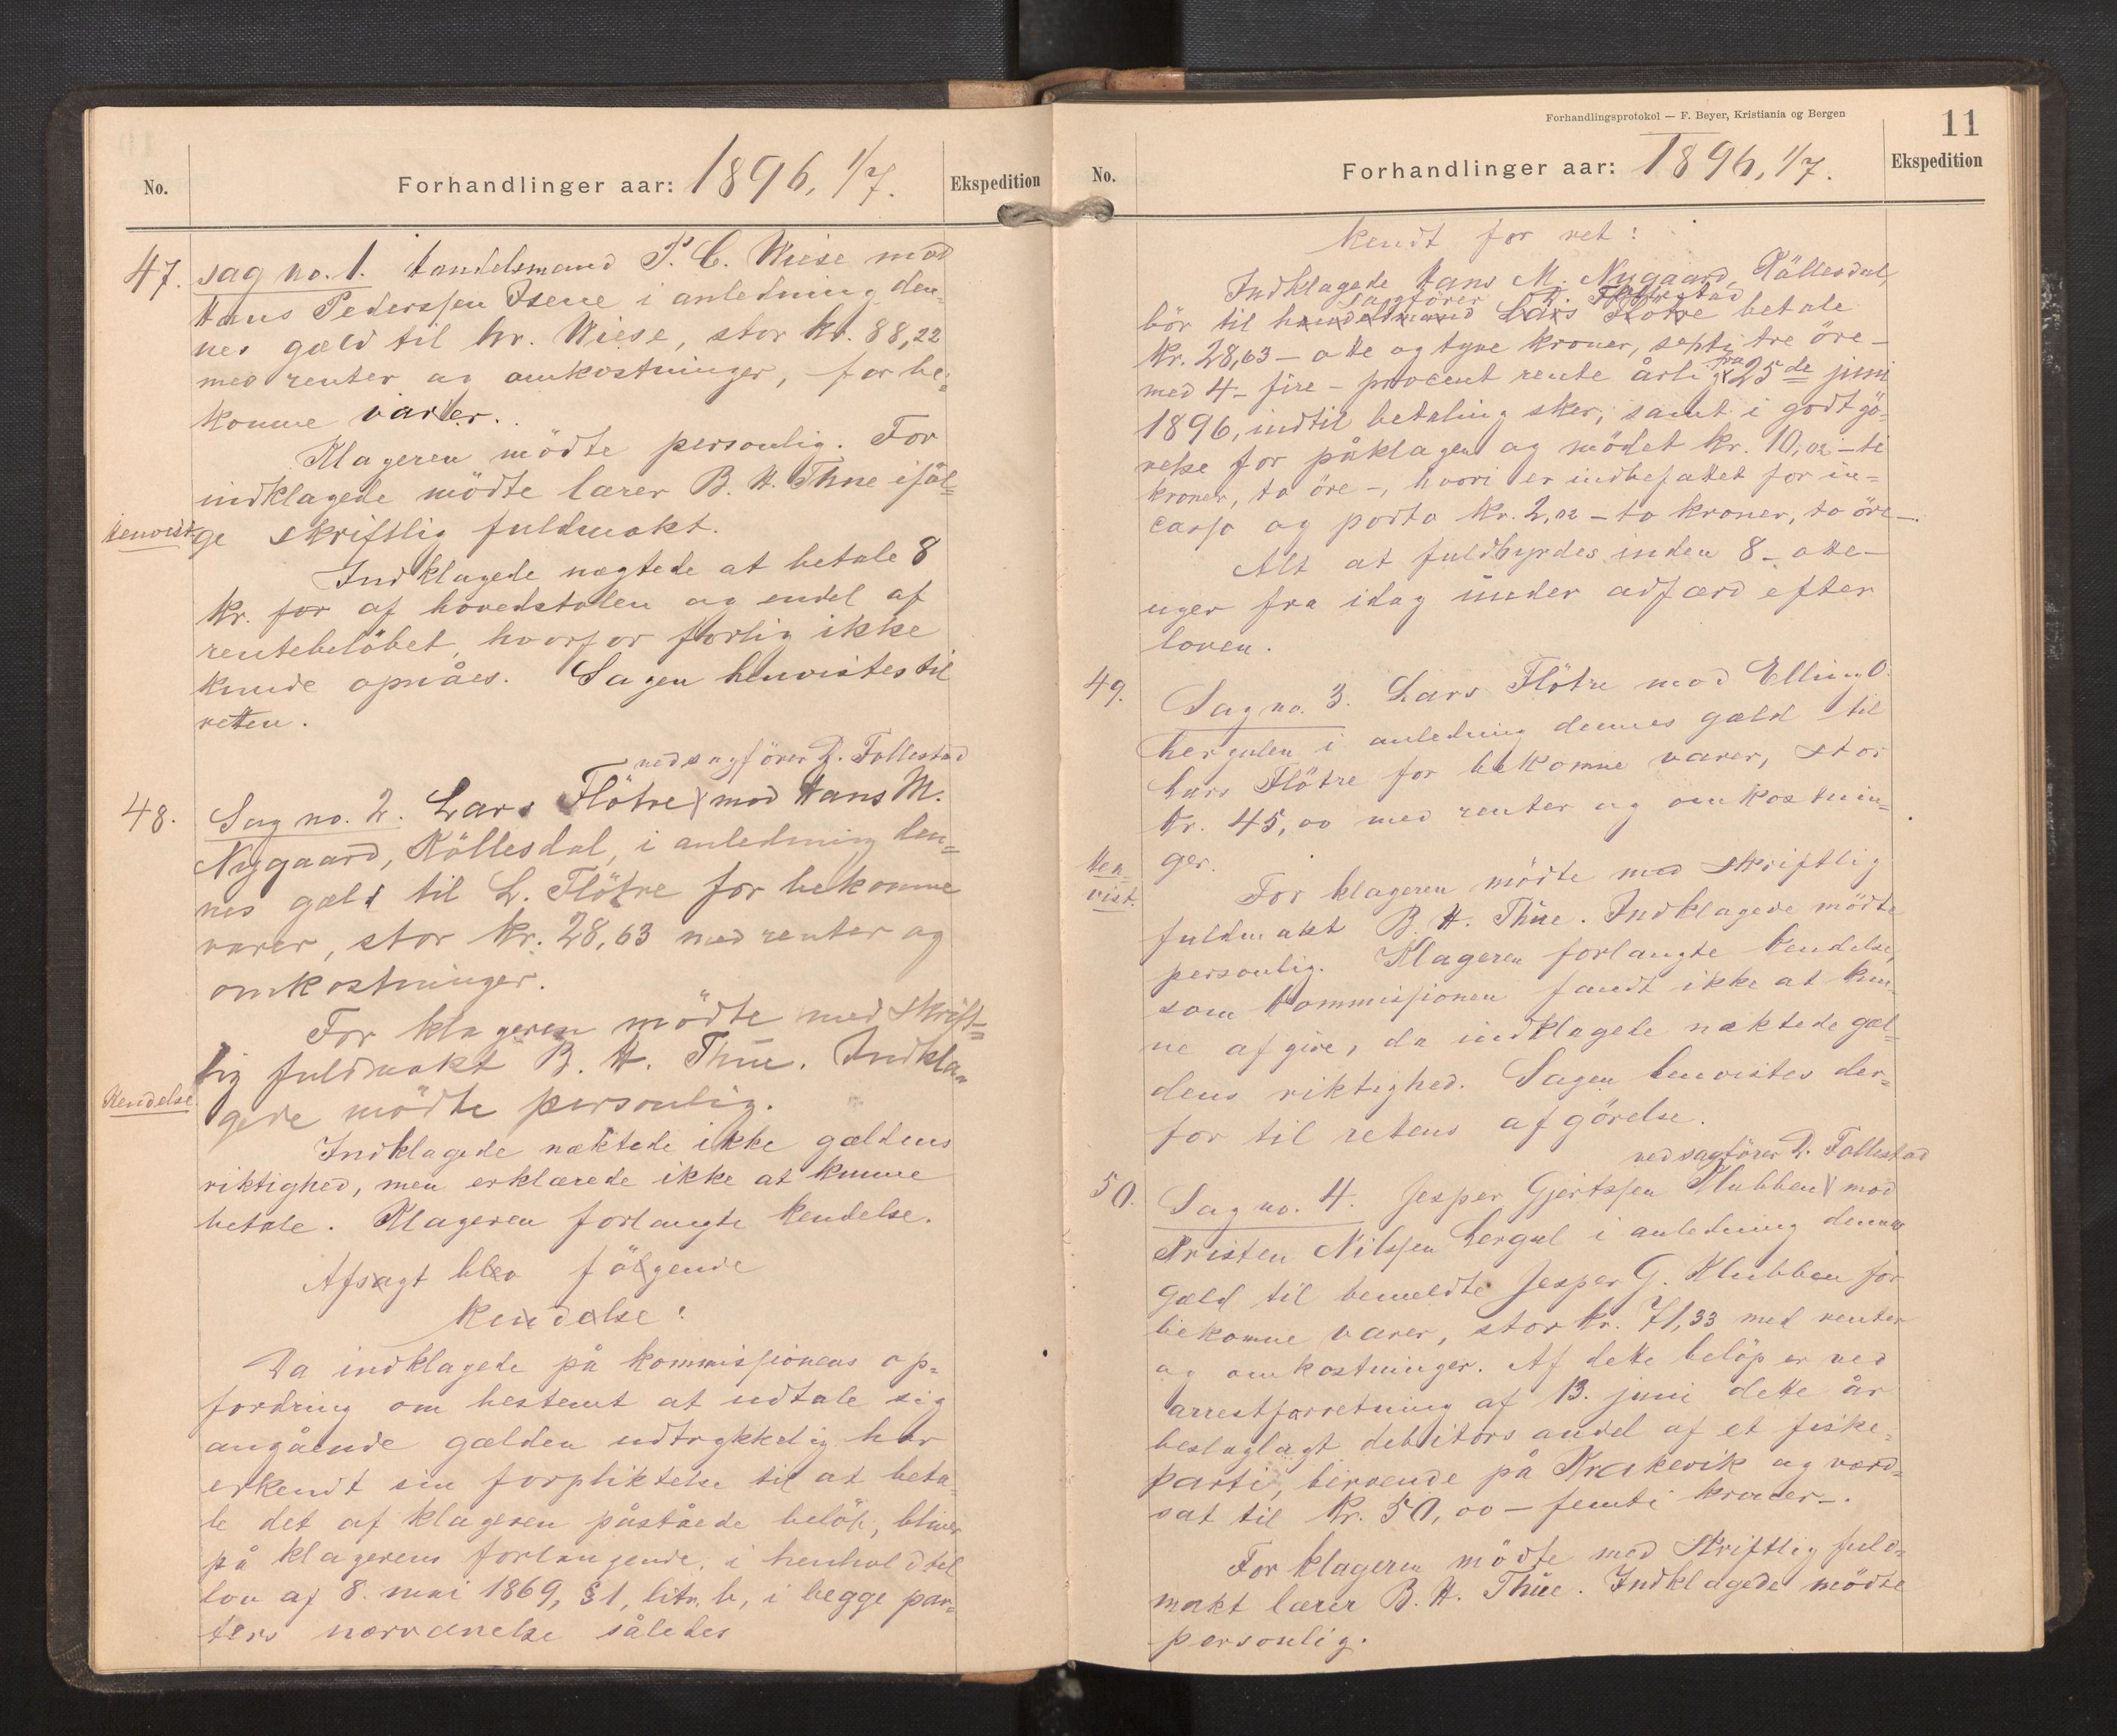 No.
Forhandlinger aar: 1896, 1/7.
Ekspedition
47.
Sag no. 1. Handelsmand P. C. Wiese mod
Hans Pederssen Isene i anledning den-
nes gæld til hr. Wiese, stor kr. 88,22
med renter og omkostninger, for be-
komne varer.
Klageren mödte personlig. For
indklagede mödte lærer B. H. Thue iföl-
Henvist
ge skriftlig fuldmakt.
Indklagede nægtede at betale 8
kr. for af hovedstolen og endel af
rentebelöbet, hvorfor forlig ikke
kunde opnåes. Sagen henvistes til
retten.
ved sagförer D. Follestad
48.
Sag no. 2. Lars Flötre mod Hans M.
Nygaard, Röllesdal, i anledning den-
nes gæld til L. Flötre for bekomne
varer, stor kr. 28,63 med renter og
omkostninger.
For klageren mödte med skrift-
lig fuldmakt B. H. Thue. Indkla-
Kendelse
gede mödte personlig.
Indklagede næktede ikke gældens
riktighed, men erklærede ikke at kunne
betale. Klageren forlangte kendelse.
Afsagt blev fölgende
kendelse:
Da indklagede på kommissionens op-
fordring om bestemt at udtale sig
angående gælden udtrykkelig har
erkendt sin forpliktelse til at beta-
le det af klageren påståede belöb, bliver
på klagerens forlangende, i henhold til
lov af 8. mai 1869, § 1, litr. b, i begge par-
ters nærværelse således
Forhandlingsprotokol — F. Beyer, Kristiania og Bergen
11
No.
Forhandlinger aar: 1896, 1/7.
Ekspedition
kendt for ret:
Indklagede Hans M. Nygaard, Röllesdal,
sagförer D. Follestad
bör til handelsmand Lars Flötre betale
kr. 28,63 – otte og tyve kroner, sexti tre öre –
med 4 – fire – procent rente årlig fra 25de juni
1896, indtil betaling sker, samt i godtgö-
relse for påklagen og mödet kr. 10,02 – ti
kroner, to öre –, hvori er indbefattet for in-
casso og porto kr. 2,02 – to kroner, to öre –.
Alt at fuldbyrdes inden 8 – otte –
uger fra idag under adfærd efter
loven.
49.
Sag no. 3. Lars Flötre mod Elling O.
Lergulen i anledning dennes gæld til
Lars Flötre for bekomne varer, stor
kr. 45,00 med renter og omkostnin-
Hen-
vist.
ger.
For klageren mödte med skriftlig
fuldmakt B. H. Thue. Indklagede mödte
personlig. Klageren forlangte kendelse,
som kommissionen fandt ikke at kun-
ne afgive, da indklagede næktede gæl-
dens riktighed. Sagen henvistes der-
for til retens afgörelse.
ved sagförer D. Follestad
50.
Sag no. 4. Jesper Gjertssen Klubben mod
Kristen Nilssen Lergul i anledning dennes
gæld til bemeldte Jesper G. Klubben for
bekomne varer, stor kr. 71,33 med renter
og omkostninger. Af dette belöp er ved
arrestforretning af 13. juni dette år
beslaglagt debitors andel af et fiske-
parti, beroende på Krakevik og værd-
sat til kr. 50,00 – femti kroner –.
For klageren mödte med skriftlig fuld-
makt lærer B. H. Thue. Indklagede mödte
personlig.